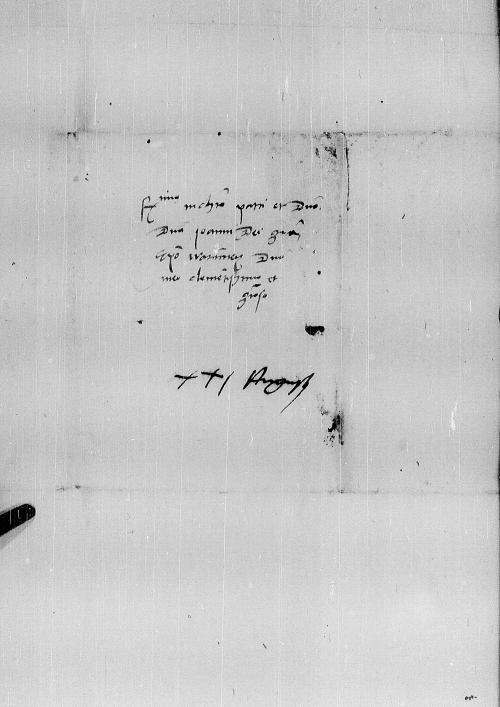 R mo in chro patri et Dno
Dno Joanni Dei gra
Epo Warmien Dno
meo clementissimo et
groso
XXI Augusti